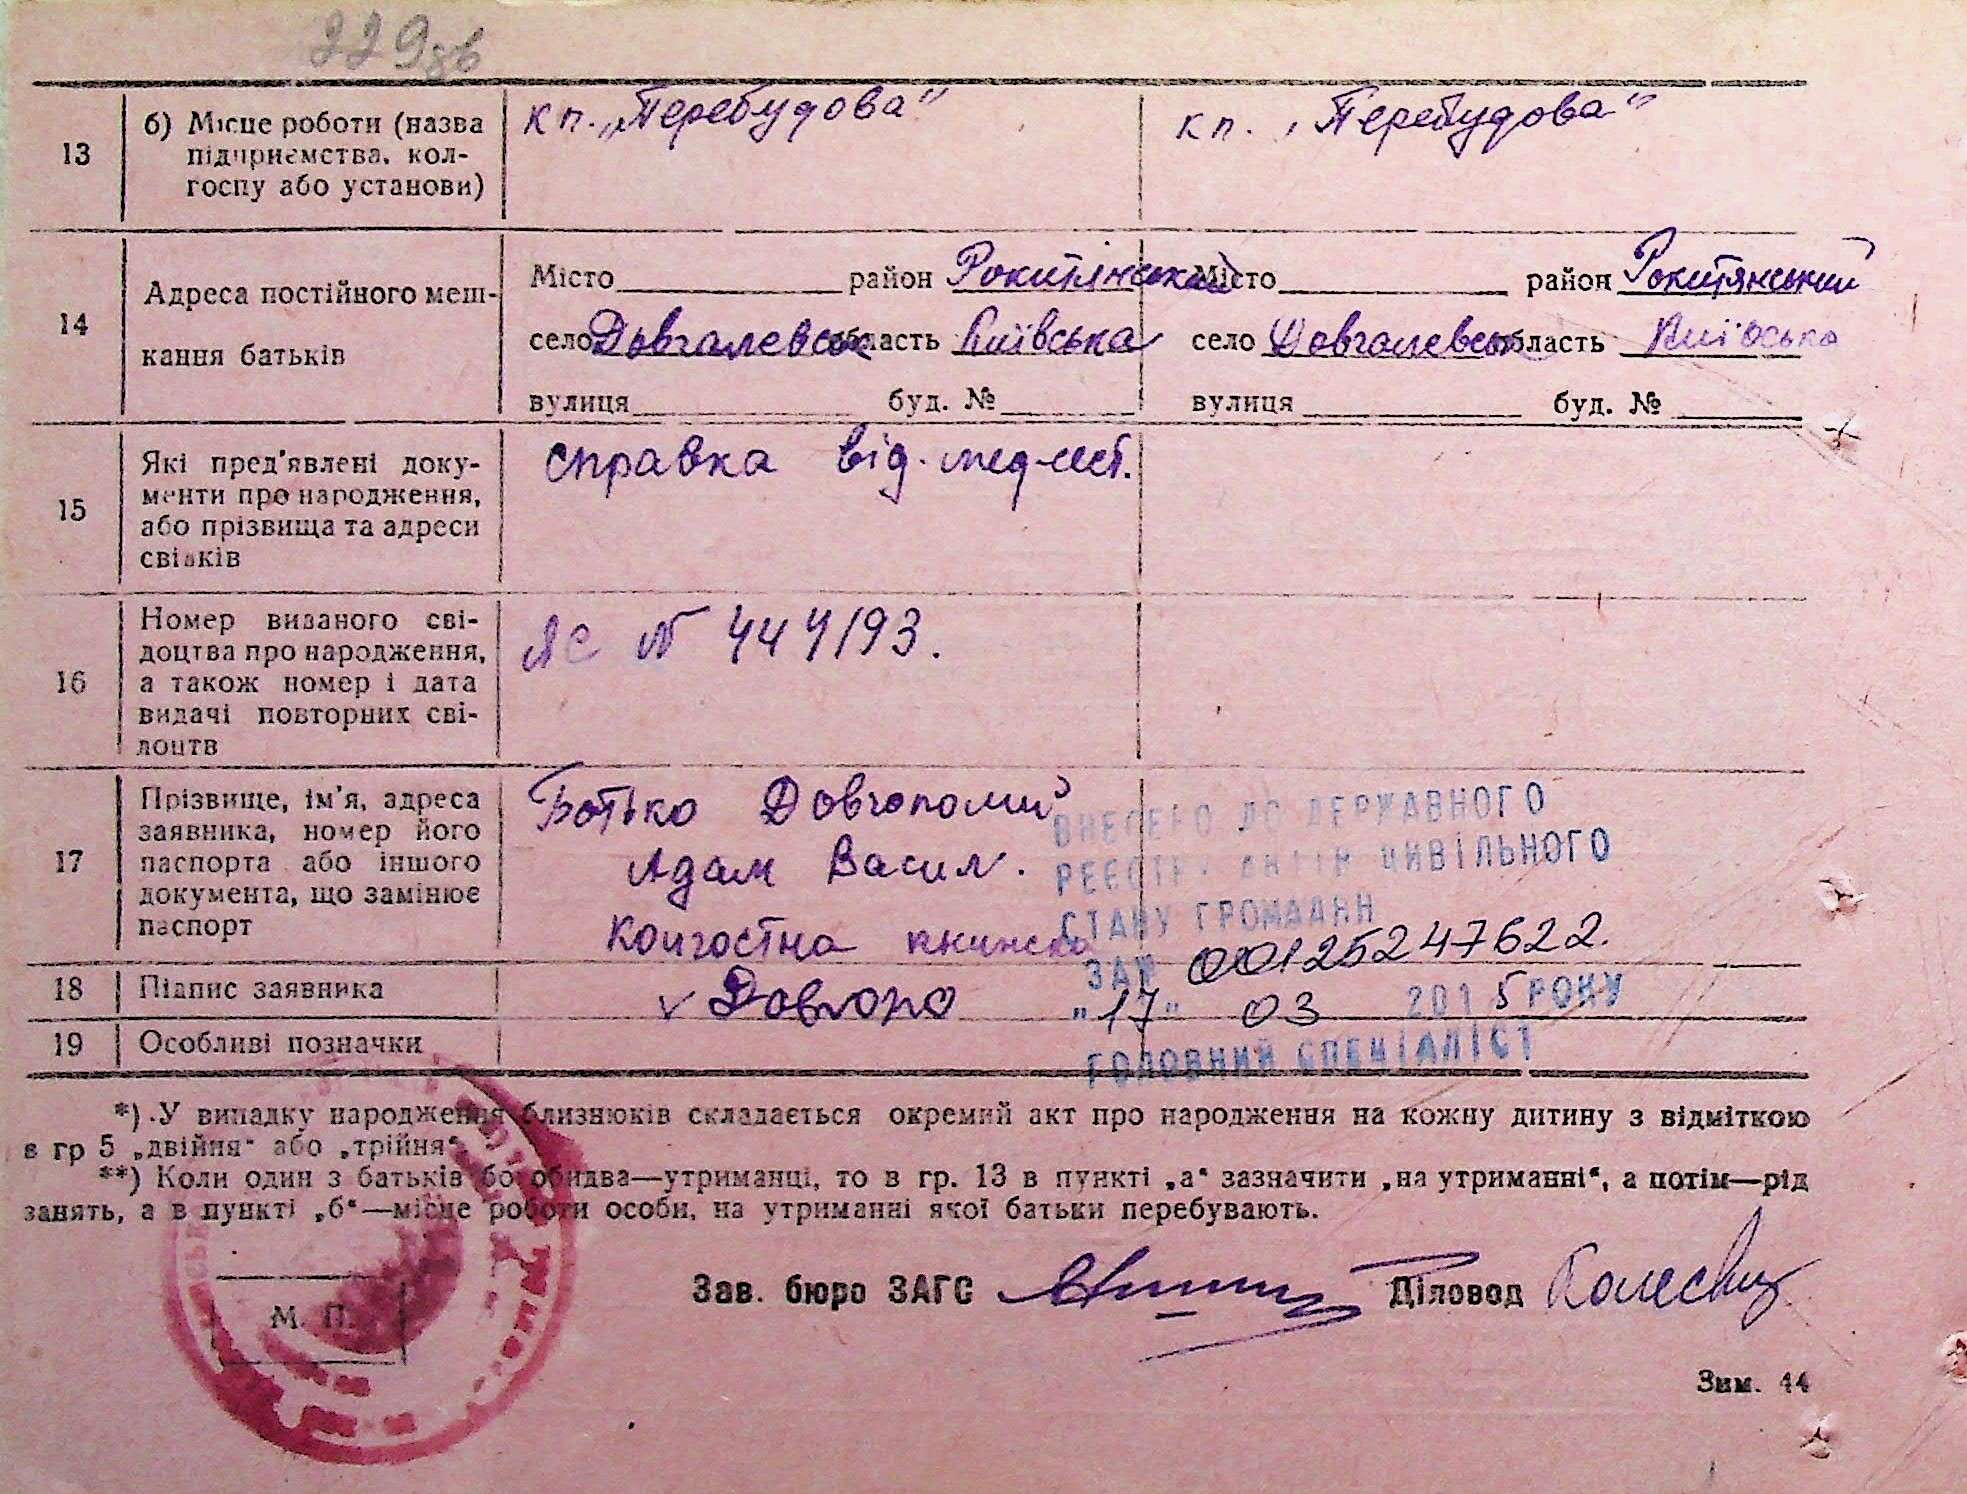 229зв
13
б) Місце роботи (назва
підприємства, кол-
госпу або установи)
кп. „Перебудова"
кп. „Перебудова"
14
Адреса постійного меш-
кання батьків
Місто район Рокитянський
село Довгалевськ область Київська
вулиця буд. №
Місто район Рокитянський
село Довгалевськ область Київська
вулиця буд. №
15
Які пред'явлені доку-
менти про народження,
або прізвища та адреси
свідків
справка від.
16
Номер виданого сві-
доцтва про народження,
а також номер і дата
видачі повторних сві-
доцтв
ЯС №
17
Прізвище, ім'я, адреса
заявника, номер його
паспорта або іншого
документа, що замінює
паспорт
Батько Довгополий
Адам Васил.
книжка
ВНЕСЕНО ДО ДЕРЖАВНОГО
РЕЄСТРУ АКТІВ ЦИВІЛЬНОГО
СТАНУ ГРОМАДЯН
ЗА № 00125247622.
„17" 03 2015 РОКУ
ГОЛОВНИЙ СПЕЦІАЛІСТ
18
Підпис заявника
Довгопо
19
Особливі позначки
*) У випадку народження близнюків складається окремий акт про народження на кожну дитину з відміткою
в гр 5 „двійня" або „трійня".
**) Коли один з батьків бо обидва—утриманці, то в гр. 13 в пункті „а" зазначити „на утриманні", а потім—рід
занять, а в пункті „б"—місце роботи особи, на утриманні якої батьки перебувають.
М. П.
Зав. бюро ЗАГС
Діловод
Зим. 44